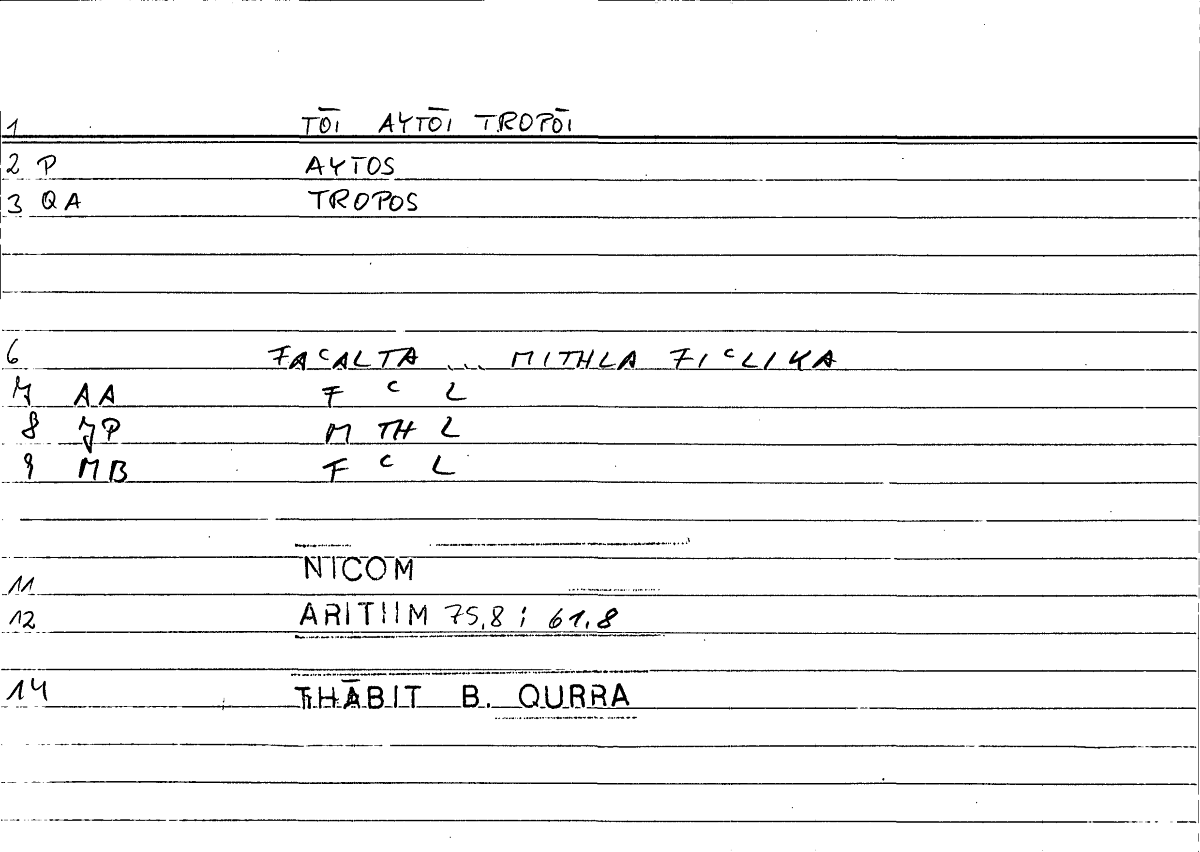 1 TŌI AYTŌI TROPŌI
2 P AYTOS
3 QA TROPOS
6 FAᶜALTA ... MITHLA FIᶜLIKA
7 AA F ᶜ L
8 JP M TH L
9 MB F ᶜ L
11 NICOM
12 ARITIIM 75,8 ; 61.8
14 THĀBIT B. QURRA